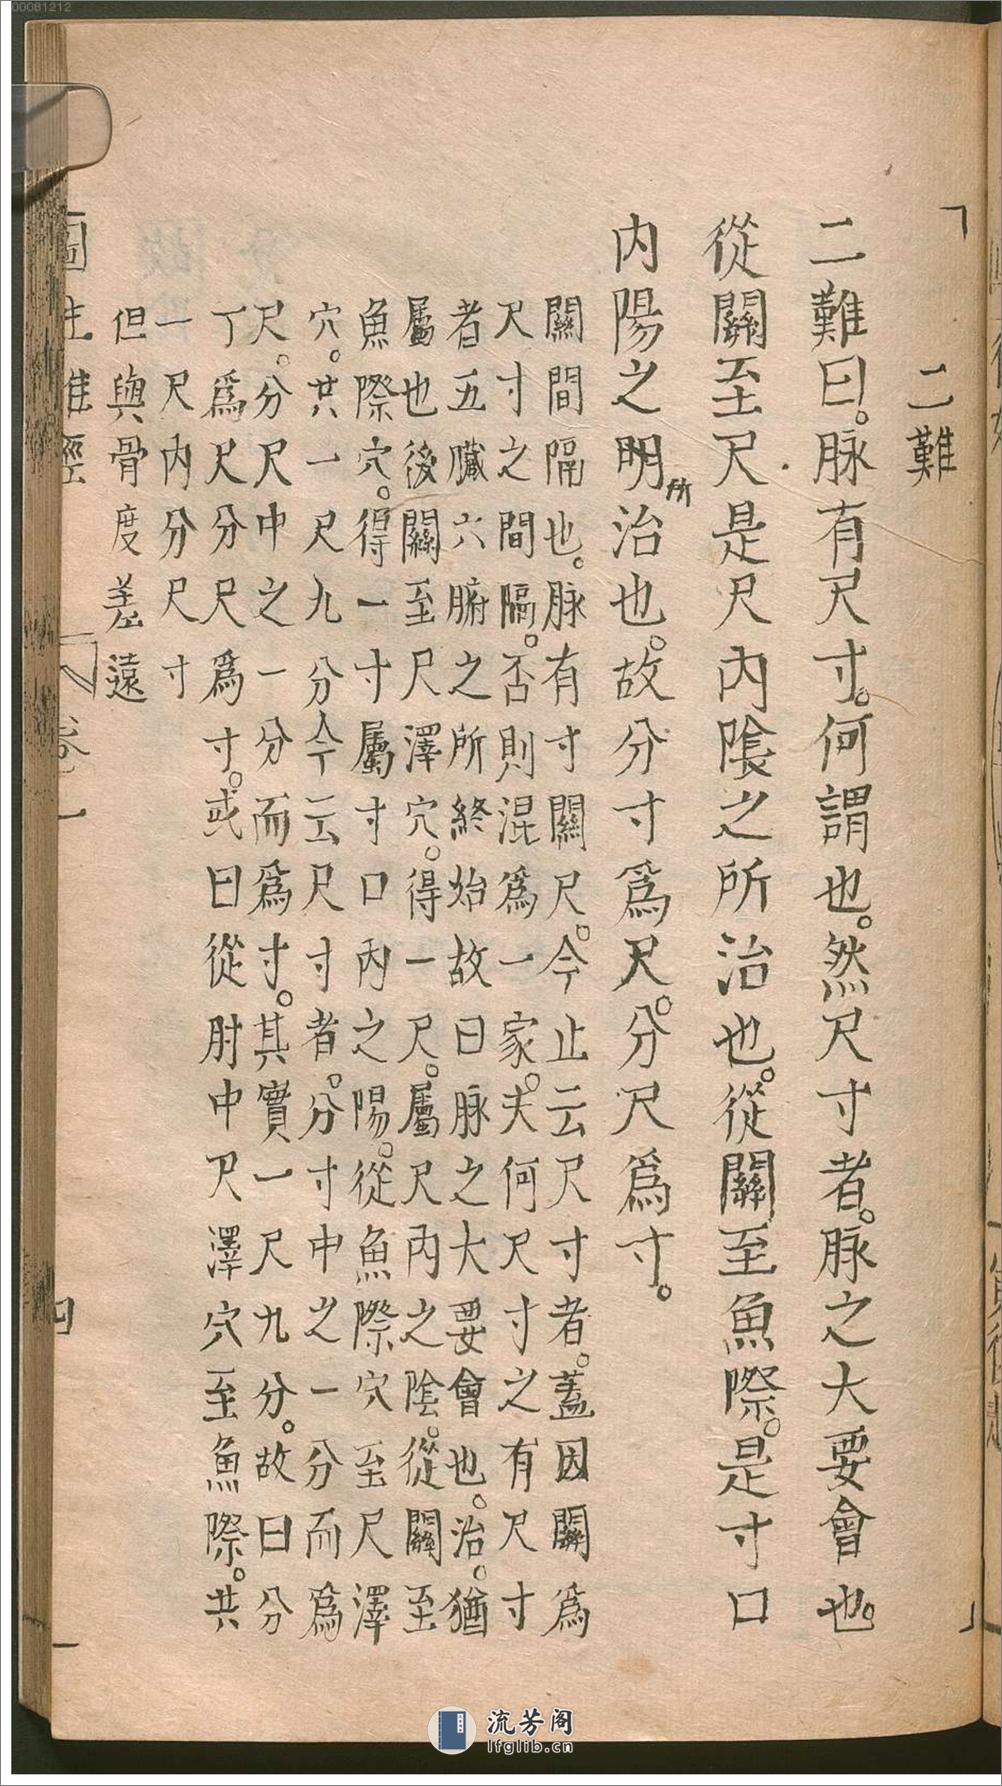 00081212
二難
二難曰。脉有尺寸。何謂也。然尺寸者。脉之大要會也。
從關至尺是尺內陰之所治也。從關至魚際。是寸口
内陽之明所治也。故分寸爲尺。分尺爲寸。
關間隔也。脉有寸關尺。今止云尺寸者。蓋因關爲
尺寸之間隔。否則混爲一家。夫何尺寸之有尺寸
者五臟六腑之所終始故曰脉之大要會也。治。猶
屬也後關至尺澤穴。得一尺。屬尺內之陰。從關至
魚際穴。得一寸屬寸口內之陽。從魚際穴至尺澤
穴。共一尺九分今云尺寸者。分寸中之一分而爲
尺。分尺中之一分而爲寸。其實一尺九分。故曰分
丁爲尺分尺爲寸。或曰從肘中尺澤穴至魚際。共
一尺内分尺寸
但與骨度差遠
圖主難經
卷一
四
流芳阁
lfglib.cn